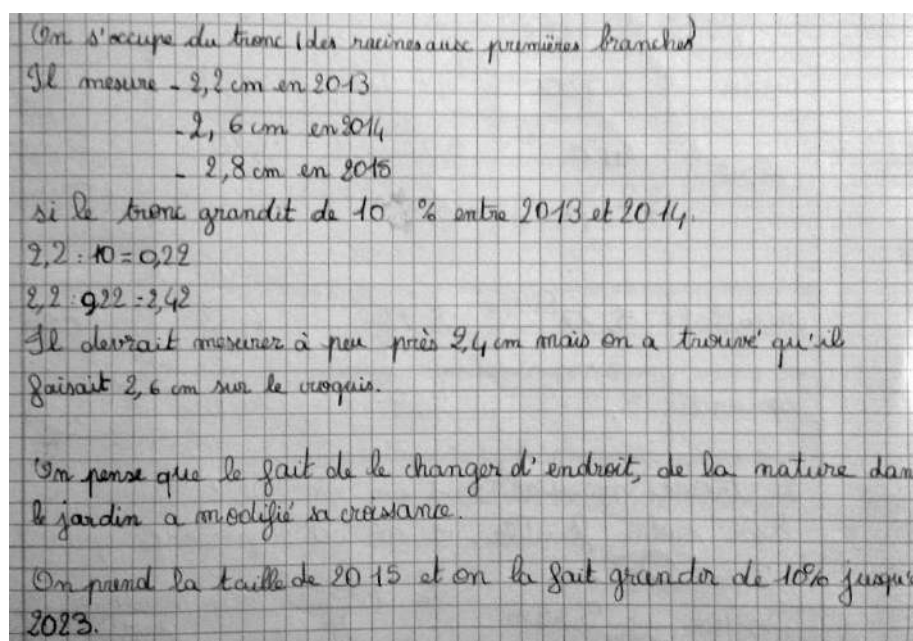 On s'occupe du tronc (des racines aux premières branches)
Il mesure - 2,2 cm en 2013
- 2, 6 cm en 2014
- 2,8 cm en 2015
si le tronc grandit de 10 % entre 2013 et 2014.
2,2 : 10 = 0,22
2,2 : 0,22 = 2,42
Il devrait mesurer à peu près 2,4 cm mais on a trouvé qu'il
faisait 2,6 cm sur le croquis.
On pense que le fait de le changer d'endroit, de la nature dans
le jardin a modifié sa croissance.
On prend la taille de 2015 et on la fait grandir de 10% jusqu'
2023.